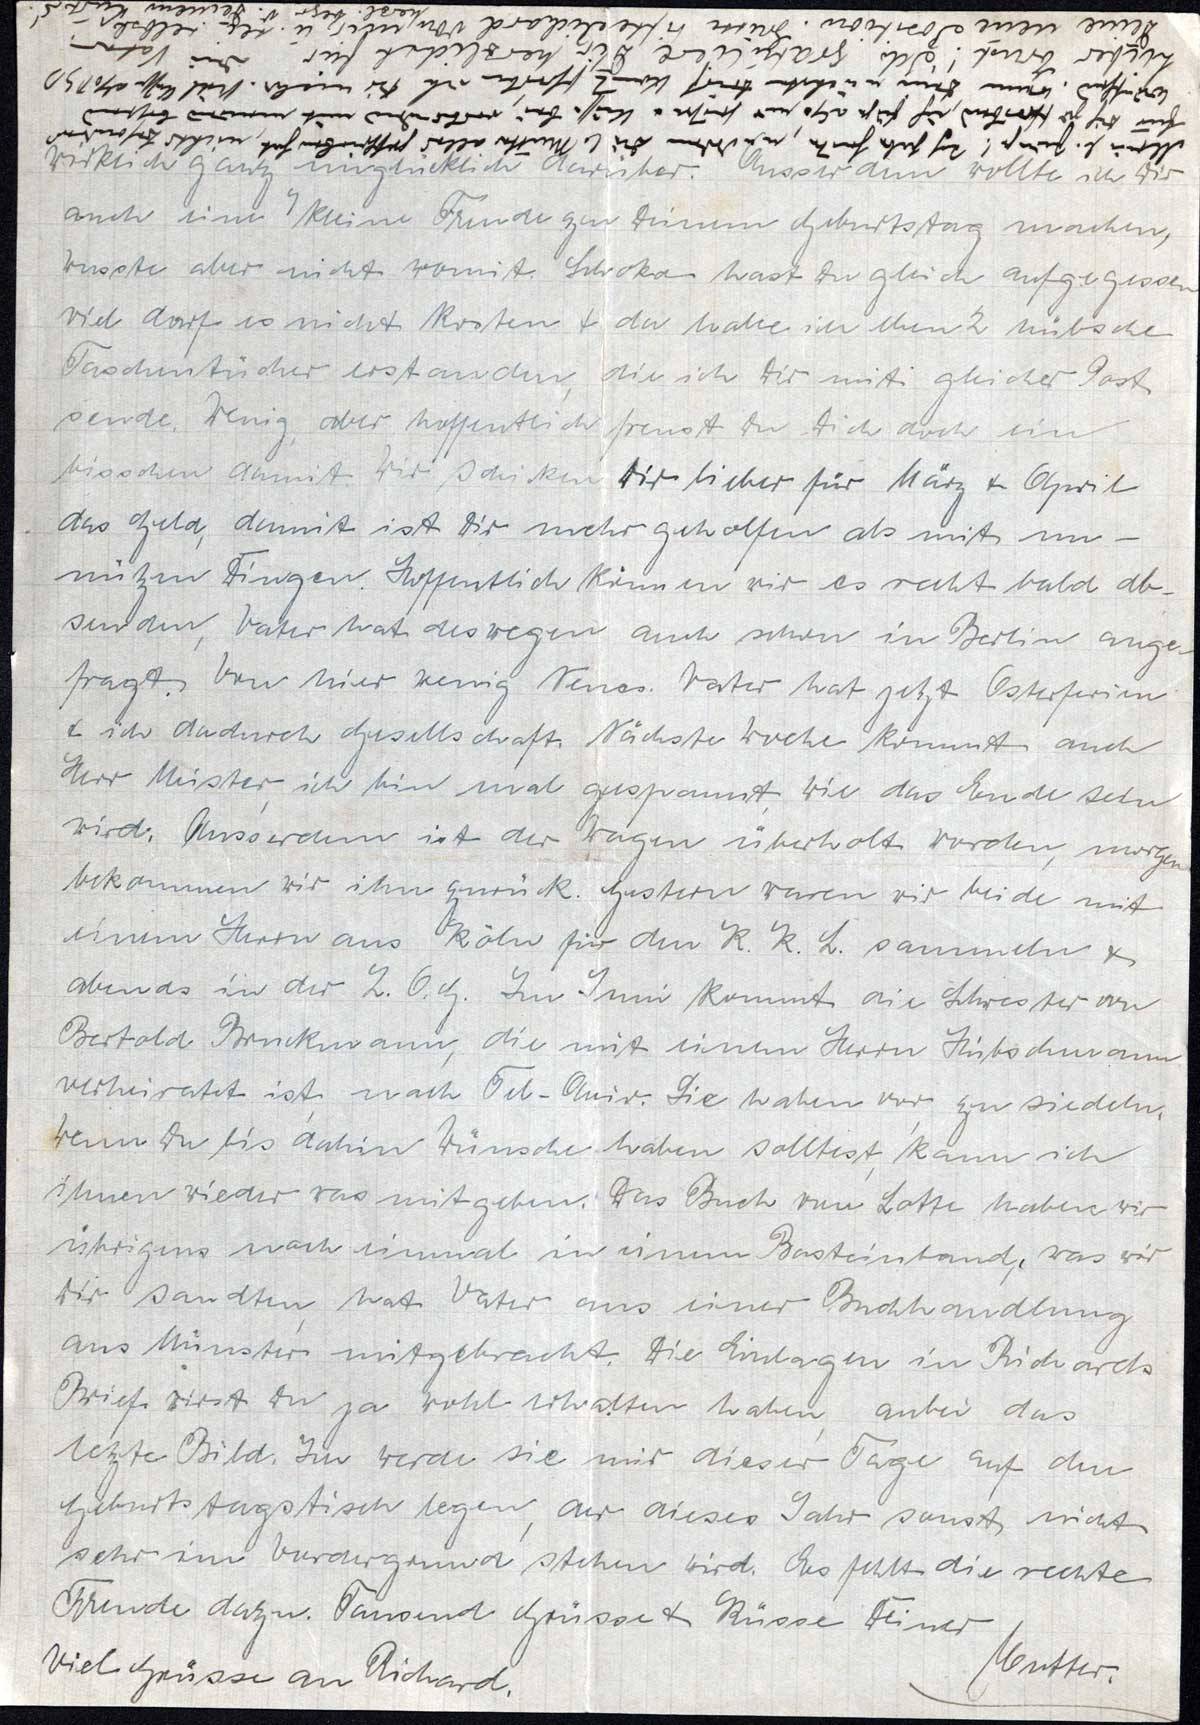 wirklich ganz unglücklich darüber. Ausserdem wollte ich Dir
auch eine kleine Freude zu Deinem Geburtstag machen,
wusste aber nicht womit. Schoko hast Du gleich aufgegessen
viel darf es nicht kosten & da habe ich eben 2 hübsche
Taschentücher erstanden, die ich Dir mit gleicher Post
sende. Wenig, aber hoffentlich freust Du Dich doch ein
bisschen damit. Wir schicken Dir lieber für März & April
das Geld, damit ist Dir mehr geholfen als mit un-
nützen Dingen. Hoffentlich können wir es recht bald ab-
senden, Vater hat deswegen auch schon in Berlin ange-
fragt. Von hier wenig Neues. Vater hat jetzt Osterferien
& ich dadurch Gesellschaft. Nächste Woche kommt auch
Herr Meister, ich bin mal gespannt, wie das Ende sein
wird. Ausserdem ist der Wagen überholt worden, morgen
bekommen wir ihn zurück. Gestern waren wir beide mit
einem Herrn aus Köln für den K. K. L. sammeln &
abends in der Z. O. G. Im Juni kommt die Schwester von
Bertold Bruckmann, die mit einem Herrn Hübschmann
verheiratet ist, nach Tel-Aviv. Sie haben vor, zu siedeln.
Wenn Du bis dahin Wünsche haben solltest, kann ich
ihnen wieder was mitgeben. Das Buch von Lotte haben wir
übrigens noch einmal in einem Basteinband, was wir
Dir sandten, hat Vater aus einer Buchhandlung
aus Münster mitgebracht. Die Einlagen in Richards
Brief wirst Du ja wohl erhalten haben, anbei das
letzte Bild. Ich werde sie mir dieser Tage auf den
Geburtstagstisch legen, der dieses Jahr sonst nicht
sehr im Vordergrund stehen wird. Es fehlt die rechte
Freude dazu. Tausend Grüsse & Küsse Deiner
Mutter.
Viele Grüsse an Richard.
Lieber Ernst! Ich gratuliere Dir herzlichst für
Deine neue Position.